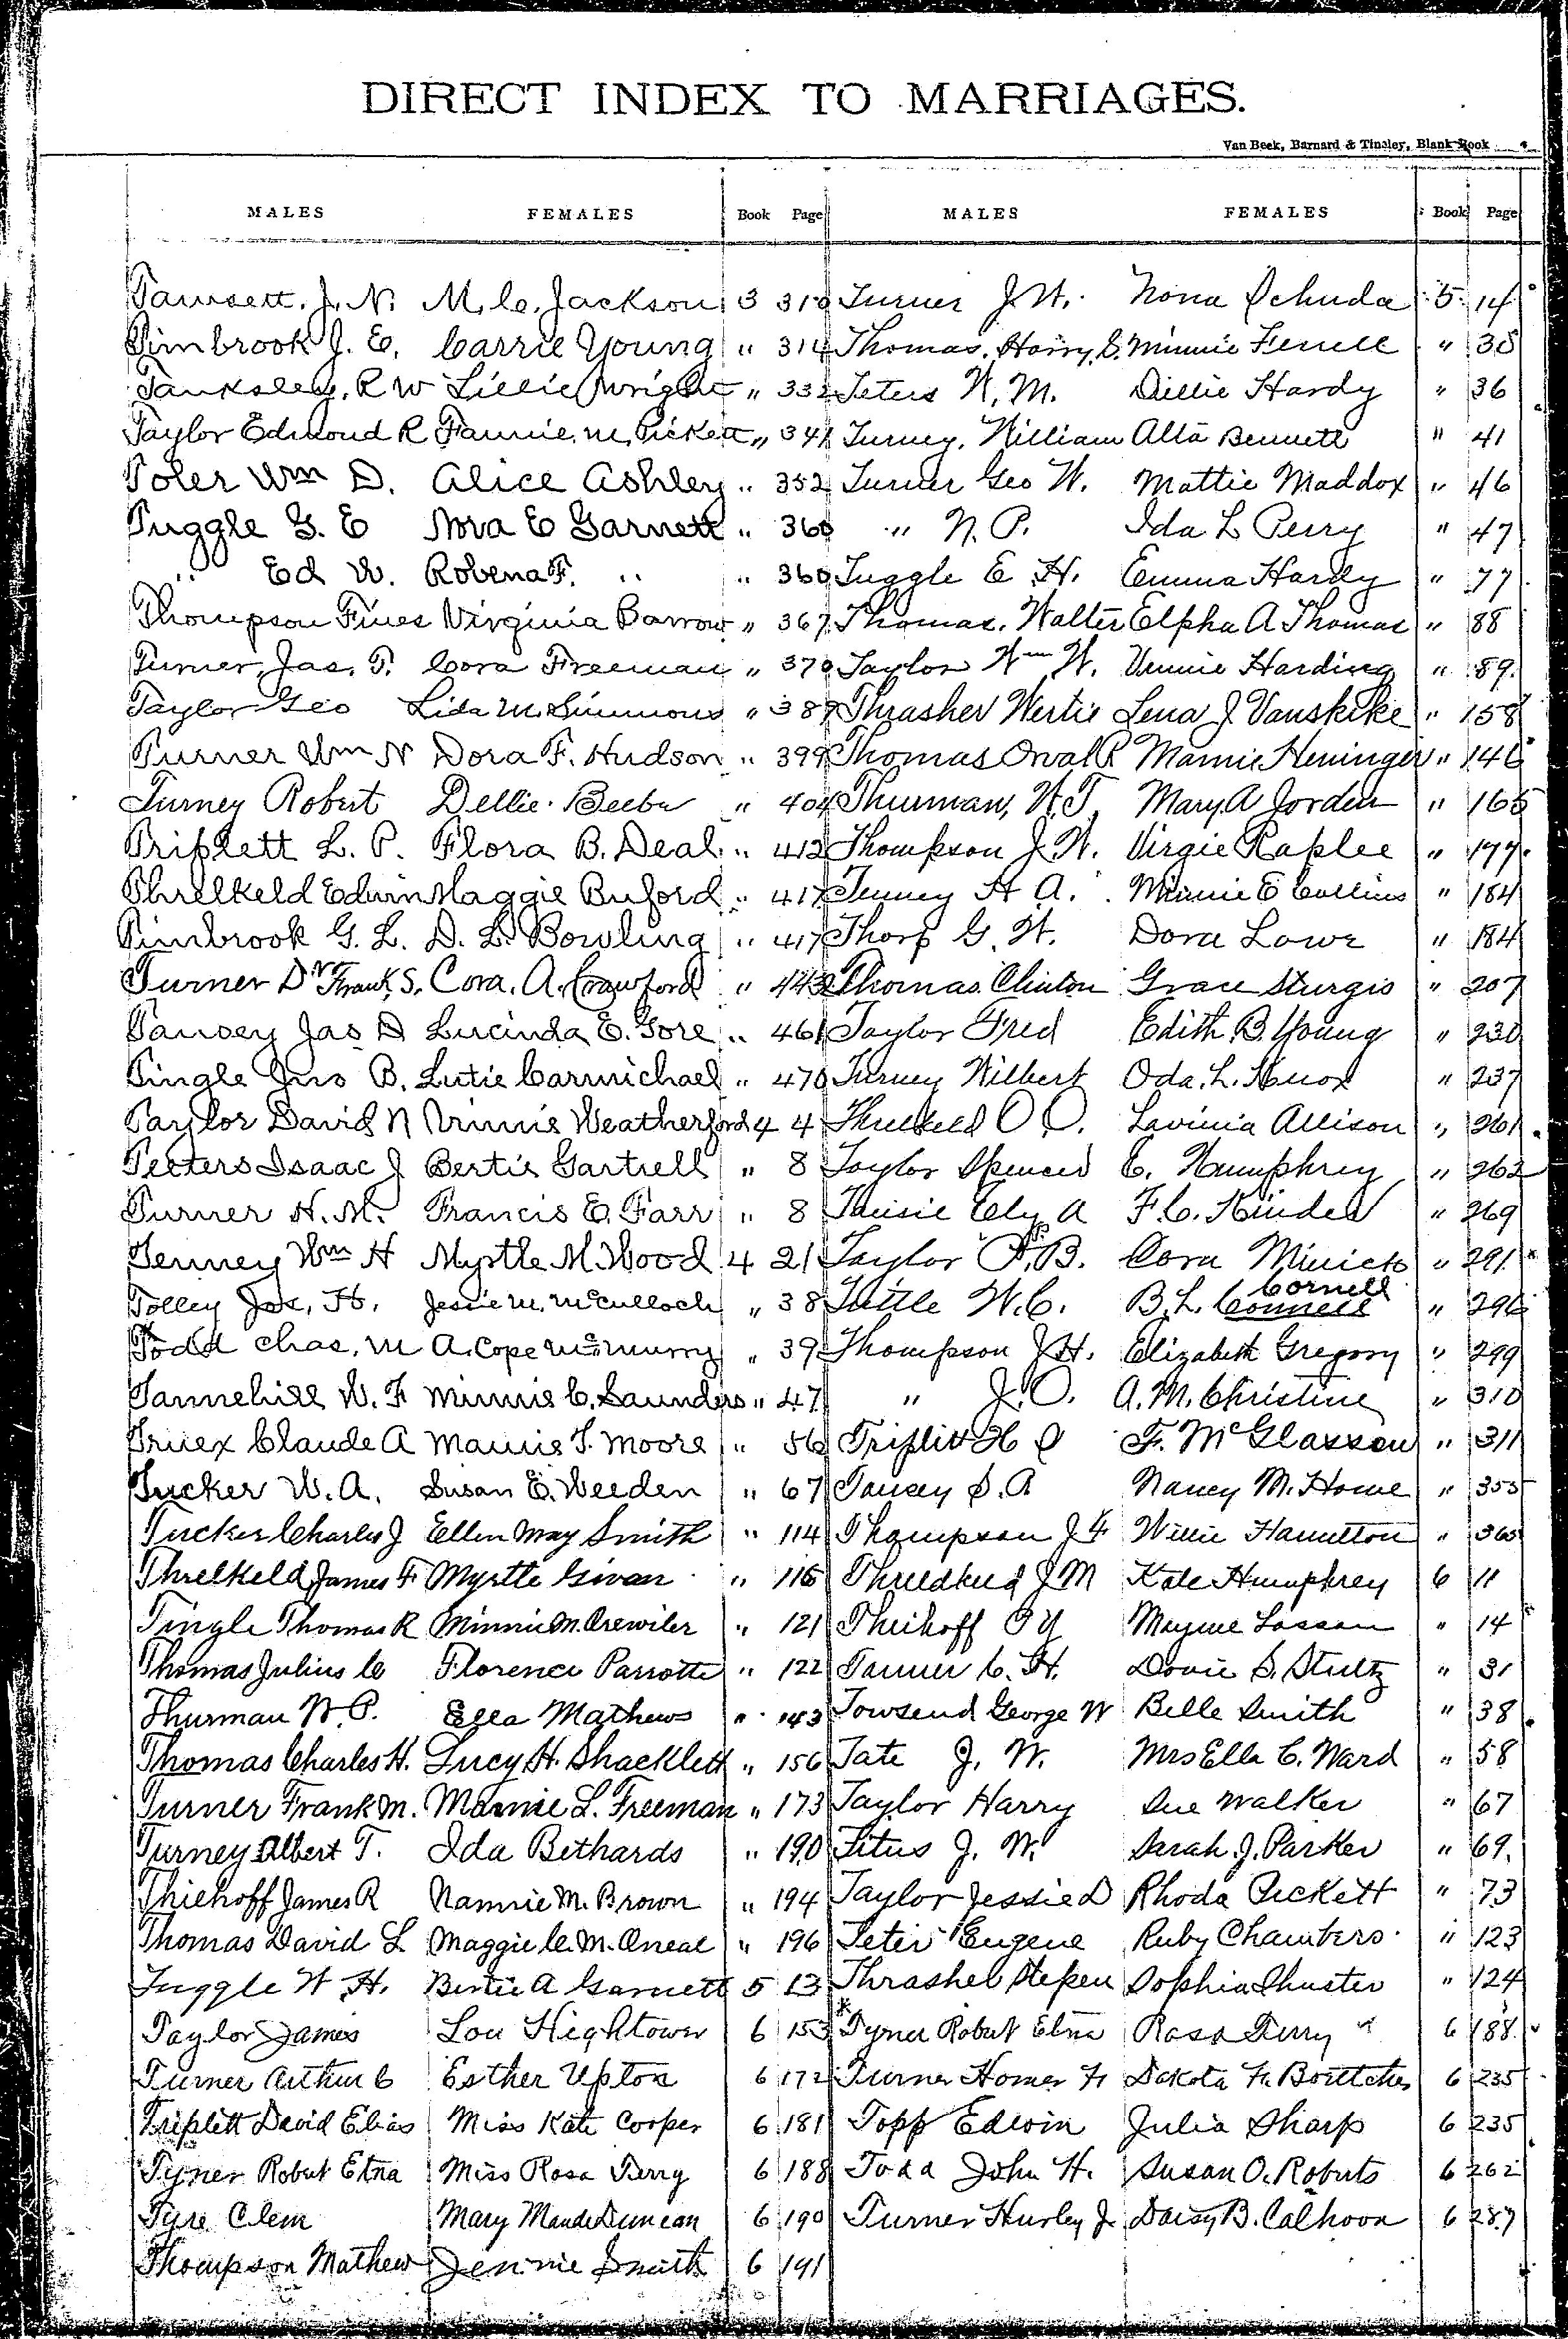 DIRECT INDEX TO MARRIAGES.
Van Beek, Barnard & Tinsley, Blank Book
MALES FEMALES Book Page MALES FEMALES Book Page
Tawsett, J. N. M. C. Jackson 3 310 Turner J. W. Nona Schuda 5 14
Timbrook J. E. Carrie Young " 314 Thomas, Harry S. Minnie Ferrell " 38
Tanksley, R W Lillie Wright " 332 Teters W. M. Dillie Hardy " 36
Taylor Edmond R Fannie M. Pickett " 341 Turney, William Alta Bennett " 41
Toler Wm D. Alice Ashley " 352 Turner Geo W. Mattie Maddox " 46
Tuggle G. E Nova E Garnett " 360 " N. P. Ida L Perry " 47
" Ed W. Robena F. " " 360 Tuggle E. H. Emma Hardy " 77
Thompson Fines Virginia Barrow " 367 Thomas, Walter Elpha A Thomas " 88
Turner, Jas. T. Cora Freeman " 370 Taylor Wm W. Vennie Harding " 89
Taylor Geo Lida M. Simmons " 387 Thrasher Wertie Lena J Vanskike " 158
Turner Wm N Dora F. Hudson " 399 Thomas Orval R Mamie Heninger " 146
Turney Robert Dellie Beebe " 404 Thurman, W. T. Mary A Jorden " 165
Triplett L. P. Flora B. Deal " 412 Thompson J. W. Virgie Raplee " 177
Threlkeld Edwin Maggie Buford " 417 Tenney H A. Minnie E Collins " 184
Timbrook G. L. D. L. Bowling " 417 Thorp G. W. Dora Lowe " 184
Turner Dr Frank S. Cora. A. Crawford " 443 Thomas Clinton Grace Sturgis " 207
Tansey Jas D Lucinda E. Gore " 461 Taylor Fred Edith B. Young " 230
Tingle Jno B. Lutie Carmichael " 470 Turney Wilbert Oda. L. Knox " 237
Taylor David N Vrinnie Weatherford 4 4 Threlkeld O O. Lavinia Allison " 261
Teeters Isaac J Bertie Gartrell " 8 Taylor Spencer E. Humphrey " 262
Turner H. M. Francis E. Farr " 8 Tausie Ely A F. C. Kinder " 269
Tenney Wm H Myrtle M. Wood 4 21 Taylor P. B. Cora Minick " 291
Tolley Jos. H. Jessie M. McCulloch " 38 Tuttle W. C. B. L. Connell Cornell " 296
Todd Chas. M A. Cope McMurry " 39 Thompson J. H. Elizabeth Gregory " 299
Tannehill W. F Minnie C. Saunders " 47 " J. O. A. M. Christine " 310
Truex Claude A Mamie T. Moore " 56 Triplitt H O F. McGlasson " 311
Tucker W. A. Susan E. Weeden " 67 Tansey S. A Nancy M. Howe " 355
Tucker Charles J Ellen May Smith " 114 Thompson J F Willie Hamilton " 365
Threlkeld James F Myrtle Givan " 115 Threldkeld J M Kate Humphrey 6 11
Tingle Thomas R Minnie M. Orewiler " 121 Theihoff O Y Mayme Lasson " 14
Thomas Julius C Florence Parrotte " 122 Tanner C. H. Dovie S. Stultz " 31
Thurman W. P. Ella Mathews " 143 Towsend George W Belle Smith " 38
Thomas Charles H. Lucy H. Shacklett " 156 Tate J. W. Mrs Ella C. Ward " 58
Turner Frank M. Mamie L. Freeman " 173 Taylor Harry Sue Walker " 67
Turney Albert T. Ida Bethards " 190 Titus J. W. Sarah J. Parker " 69
Thiehoff James R Nannie M. Brown " 194 Taylor Jessie D Rhoda Pickett " 73
Thomas David L Maggie C. M. Oneal " 196 Teter Eugene Ruby Chambers " 123
Tuggle W H. Bertie A Garnett 5 13 Thrasher Stepen Sophia Shuster " 124
Taylor James Lou Hightower 6 153 * Tyner Robert Etna Rosa Terry 6 188
Turner Arthur C Esther Upton 6 172 Turner Homer F Dakota F. Boettcher 6 235
Triplett David Elias Miss Kate Cooper 6 181 Topp Edwin Julia Sharp 6 235
Tyner Robert Etna Miss Rosa Terry 6 188 Todd John H. Susan O. Roberts 6 262
Tyre Clem Mary Maude Duncan 6 190 Turner Hurley J Daisy B. Calhoon 6 287
Thompson Mathew Jennie Smith 6 191